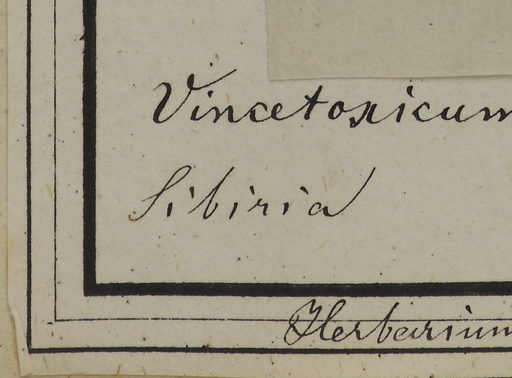 Vincetoxicum
Sibiria
Herbarium